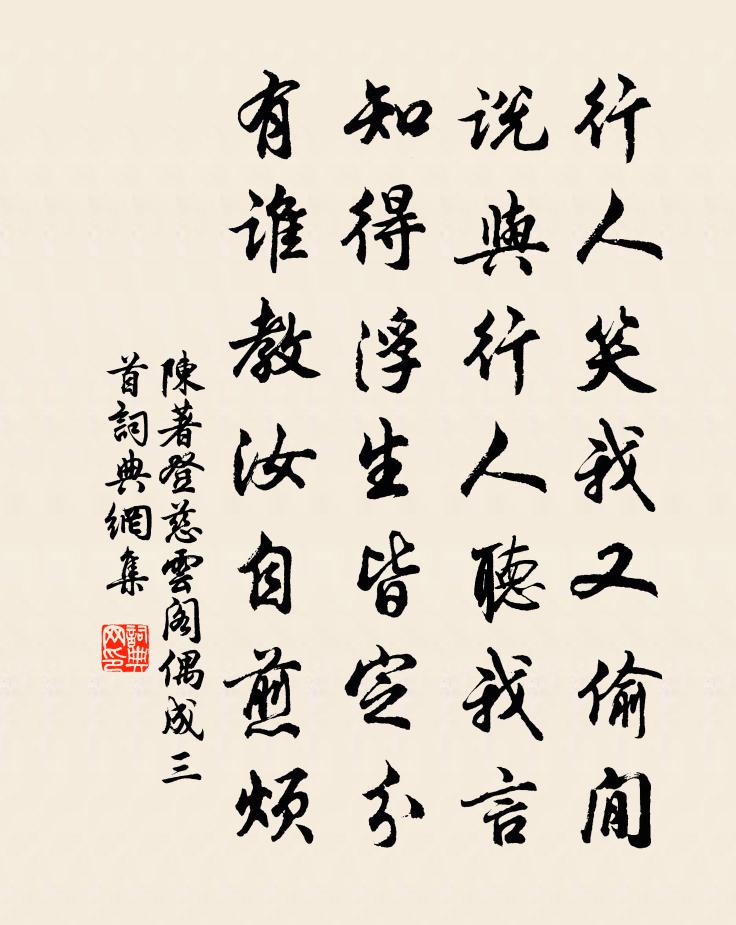 行人笑我又偷閒
說與行人聽我言
知得浮生皆定分
有誰教汝自煎煩
陳著登慈雲閣偶成三
首詞典網集
詞典網印